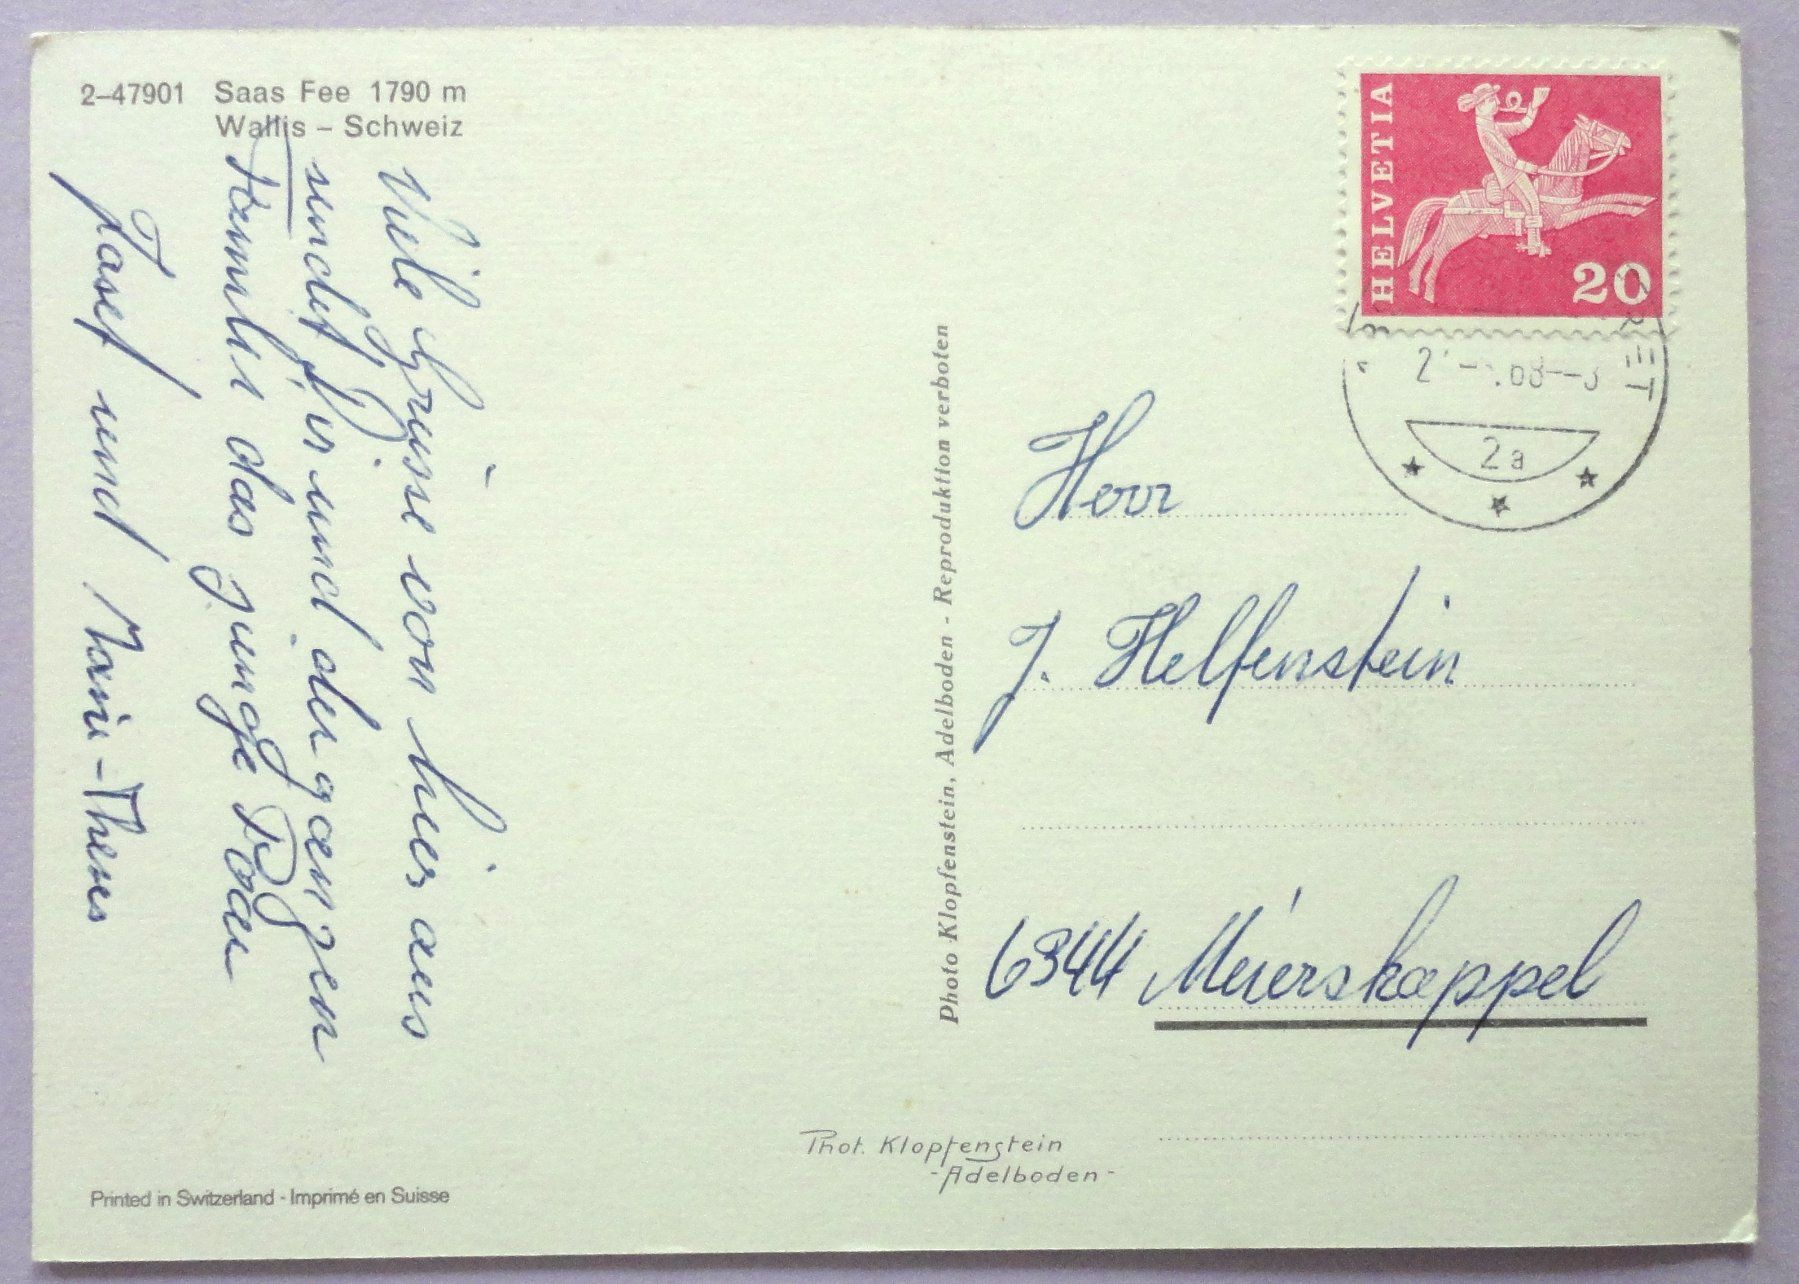 2–47901 Saas Fee 1790 m
Wallis – Schweiz
Viele Grüsse von hier aus
sendet Dir und der ganzen
Familie das junge Paar
Josef und Marie-Theres
Printed in Switzerland - Imprimé en Suisse
Photo Klopfenstein, Adelboden - Reproduktion verboten
Phot. Klopfenstein
-Adelboden-
HELVETIA
20
2a
Herr
J. Helfenstein
6344 Meierskappel